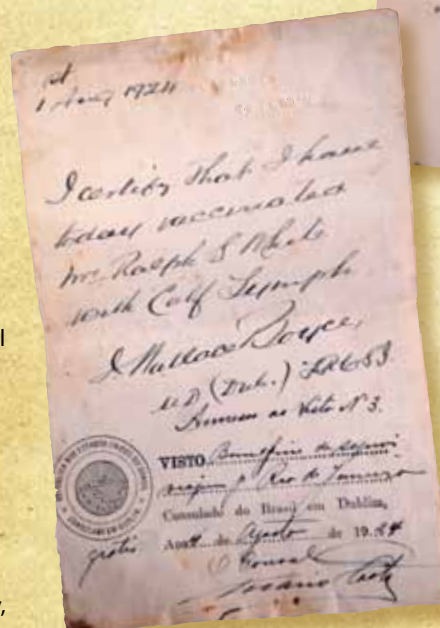 st
1 Aug 1924
I certify that I have
today vaccinated
Mr. Ralph S
with Calf Lymph
J. Wallace Boyce,
M D (Dub.)
Annexo ao Visto Nº 3.
VISTO Bom afim de seguir
viagem p. Rio de Janeiro
Consulado do Brasil em Dublin,
Aos de Agosto de 1924
O Consul
gratis
l
,